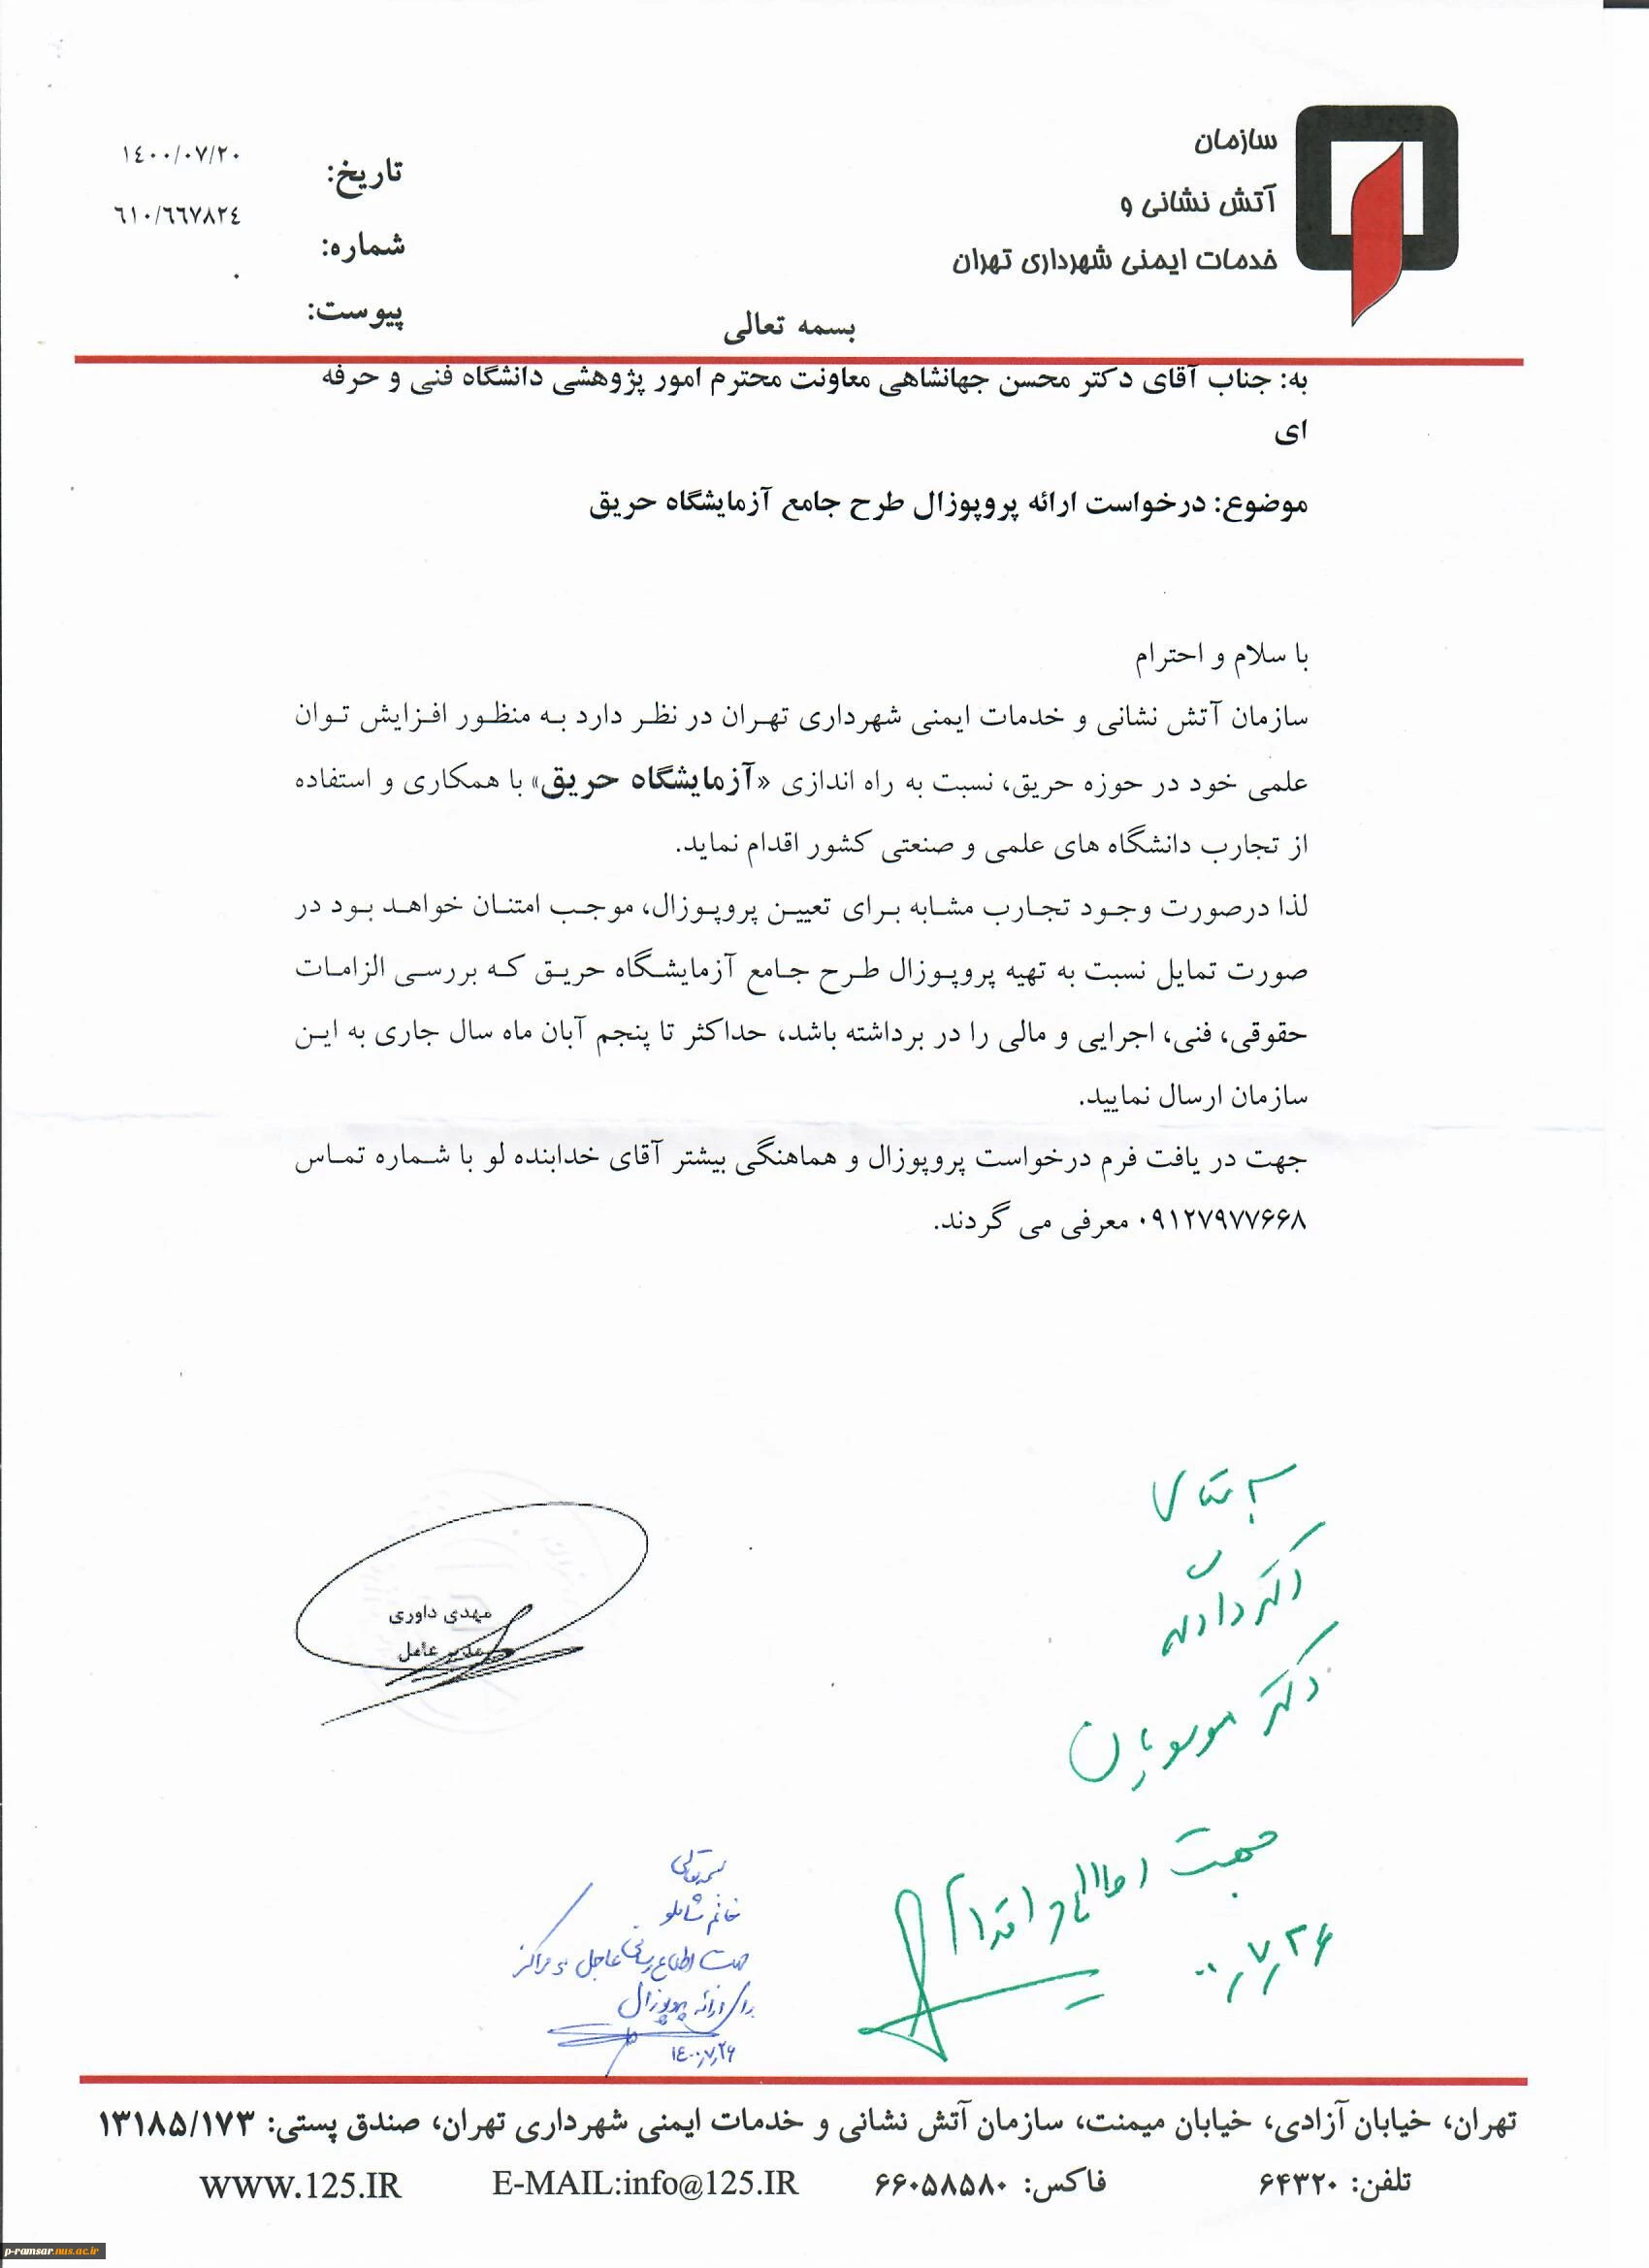 سازمان
آتش نشانی و
خدمات ایمنی شهرداری تهران
تاریخ: ١٤٠٠/٠٧/٢٠
شماره: ٦١٠/٦٦٧٨٢٤
پیوست: ٠
بسمه تعالی
به: جناب آقای دکتر محسن جهانشاهی معاونت محترم امور پژوهشی دانشگاه فنی و حرفه
ای
موضوع: درخواست ارائه پروپوزال طرح جامع آزمایشگاه حریق
با سلام و احترام
سازمان آتش نشانی و خدمات ایمنی شهرداری تهران در نظر دارد به منظور افزایش توان
علمی خود در حوزه حریق، نسبت به راه اندازی «آزمایشگاه حریق» با همکاری و استفاده
از تجارب دانشگاه های علمی و صنعتی کشور اقدام نماید.
لذا درصورت وجود تجارب مشابه برای تعیین پروپوزال، موجب امتنان خواهد بود در
صورت تمایل نسبت به تهیه پروپوزال طرح جامع آزمایشگاه حریق که بررسی الزامات
حقوقی، فنی، اجرایی و مالی را در برداشته باشد، حداکثر تا پنجم آبان ماه سال جاری به این
سازمان ارسال نمایید.
جهت در یافت فرم درخواست پروپوزال و هماهنگی بیشتر آقای خدابنده لو با شماره تماس
۰۹۱۲۷۹۷۷۶۶۸ معرفی می گردند.
مهدی داوری
مدیر عامل
دکتر موسویان
جهت اطلاع و اقدام
۰۰/۷/۲۶
بسمه تعالی
خانم شاملو
جهت اطلاع رسانی عاجل به مراکز
برای ارائه پروپوزال
۱٤۰۰/۷/۲۶
تهران، خیابان آزادی، خیابان میمنت، سازمان آتش نشانی و خدمات ایمنی شهرداری تهران، صندق پستی: ۱۳۱۸۵/۱۷۳
تلفن: ۶۴۳۲۰ فاکس: ۶۶۰۵۸۵۸۰ E-MAIL:info@125.IR WWW.125.IR
p-ramsar.nus.ac.ir